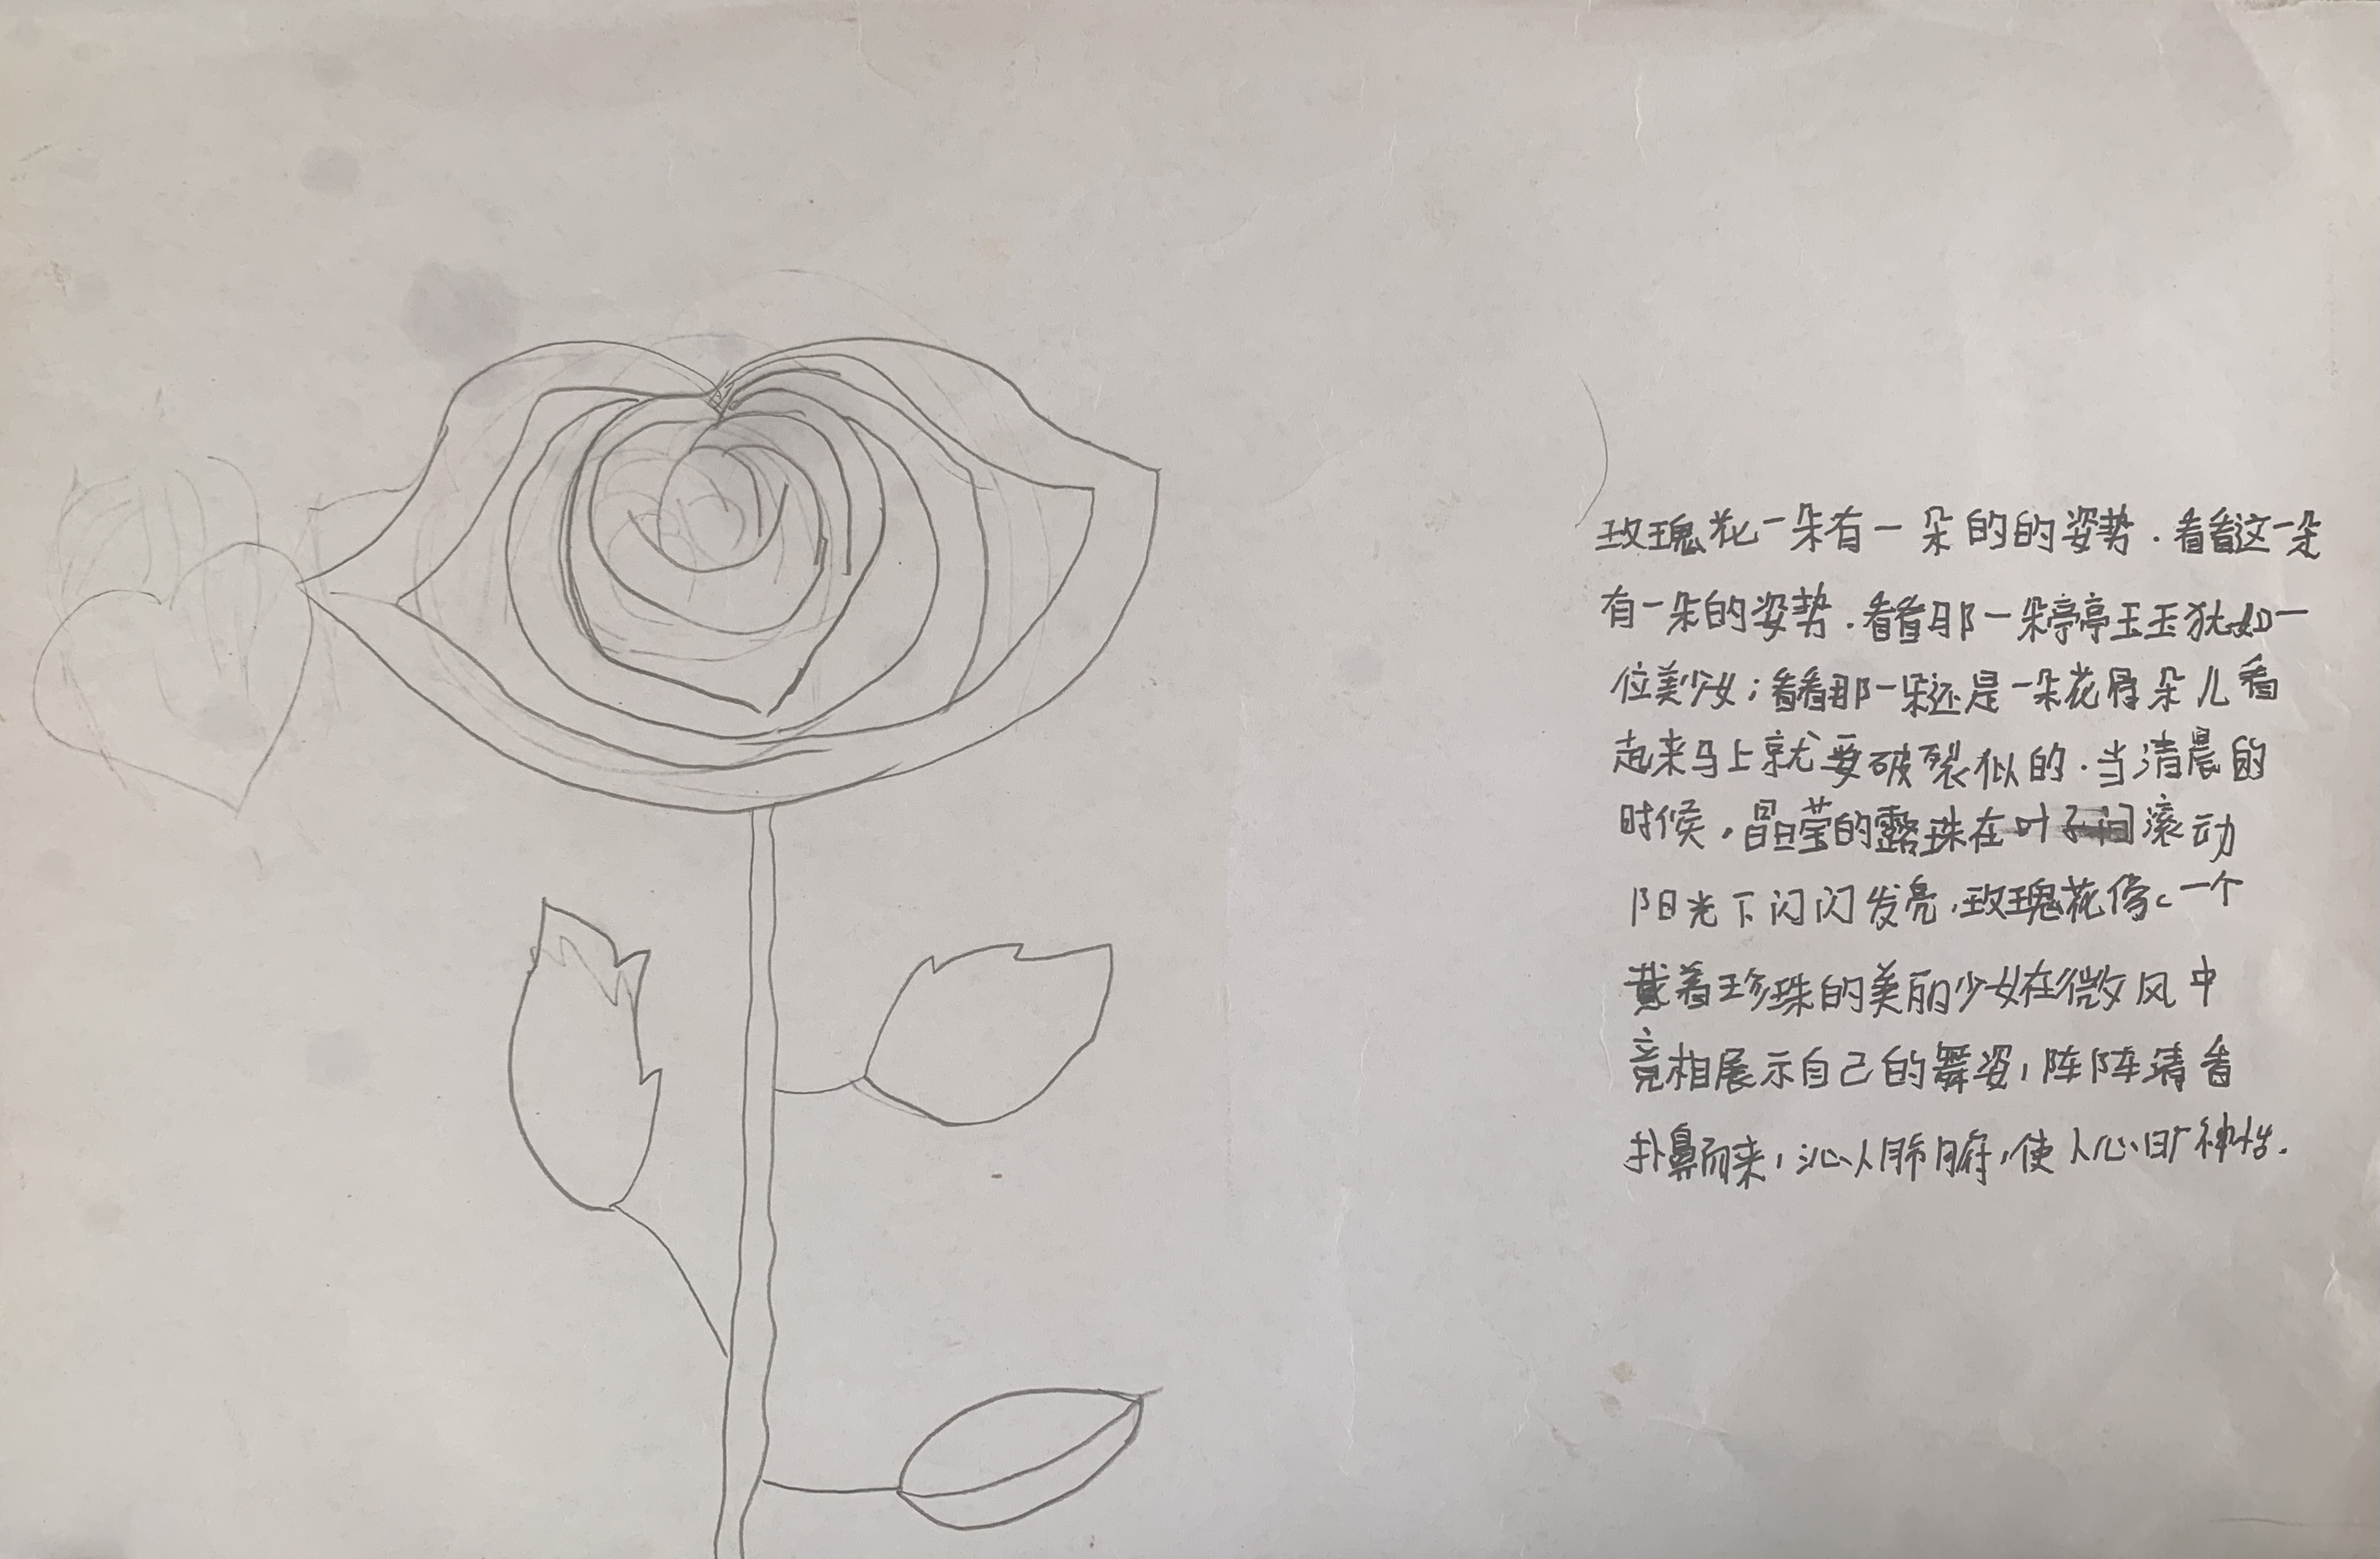 玫瑰花一朵有一朵的的姿势.看看这一朵
有一朵的姿势.看看那一朵亭亭玉玉犹如一
位美少女;看看那一朵还是一朵花骨朵儿看
起来马上就要破裂似的.当清晨的
时候,晶莹的露珠在叶子间滚动
阳光下闪闪发亮,玫瑰花像一个
戴着珍珠的美丽少女在微风中
竞相展示自己的舞姿,阵阵清香
扑鼻而来,沁人肺腑,使人心旷神怡.